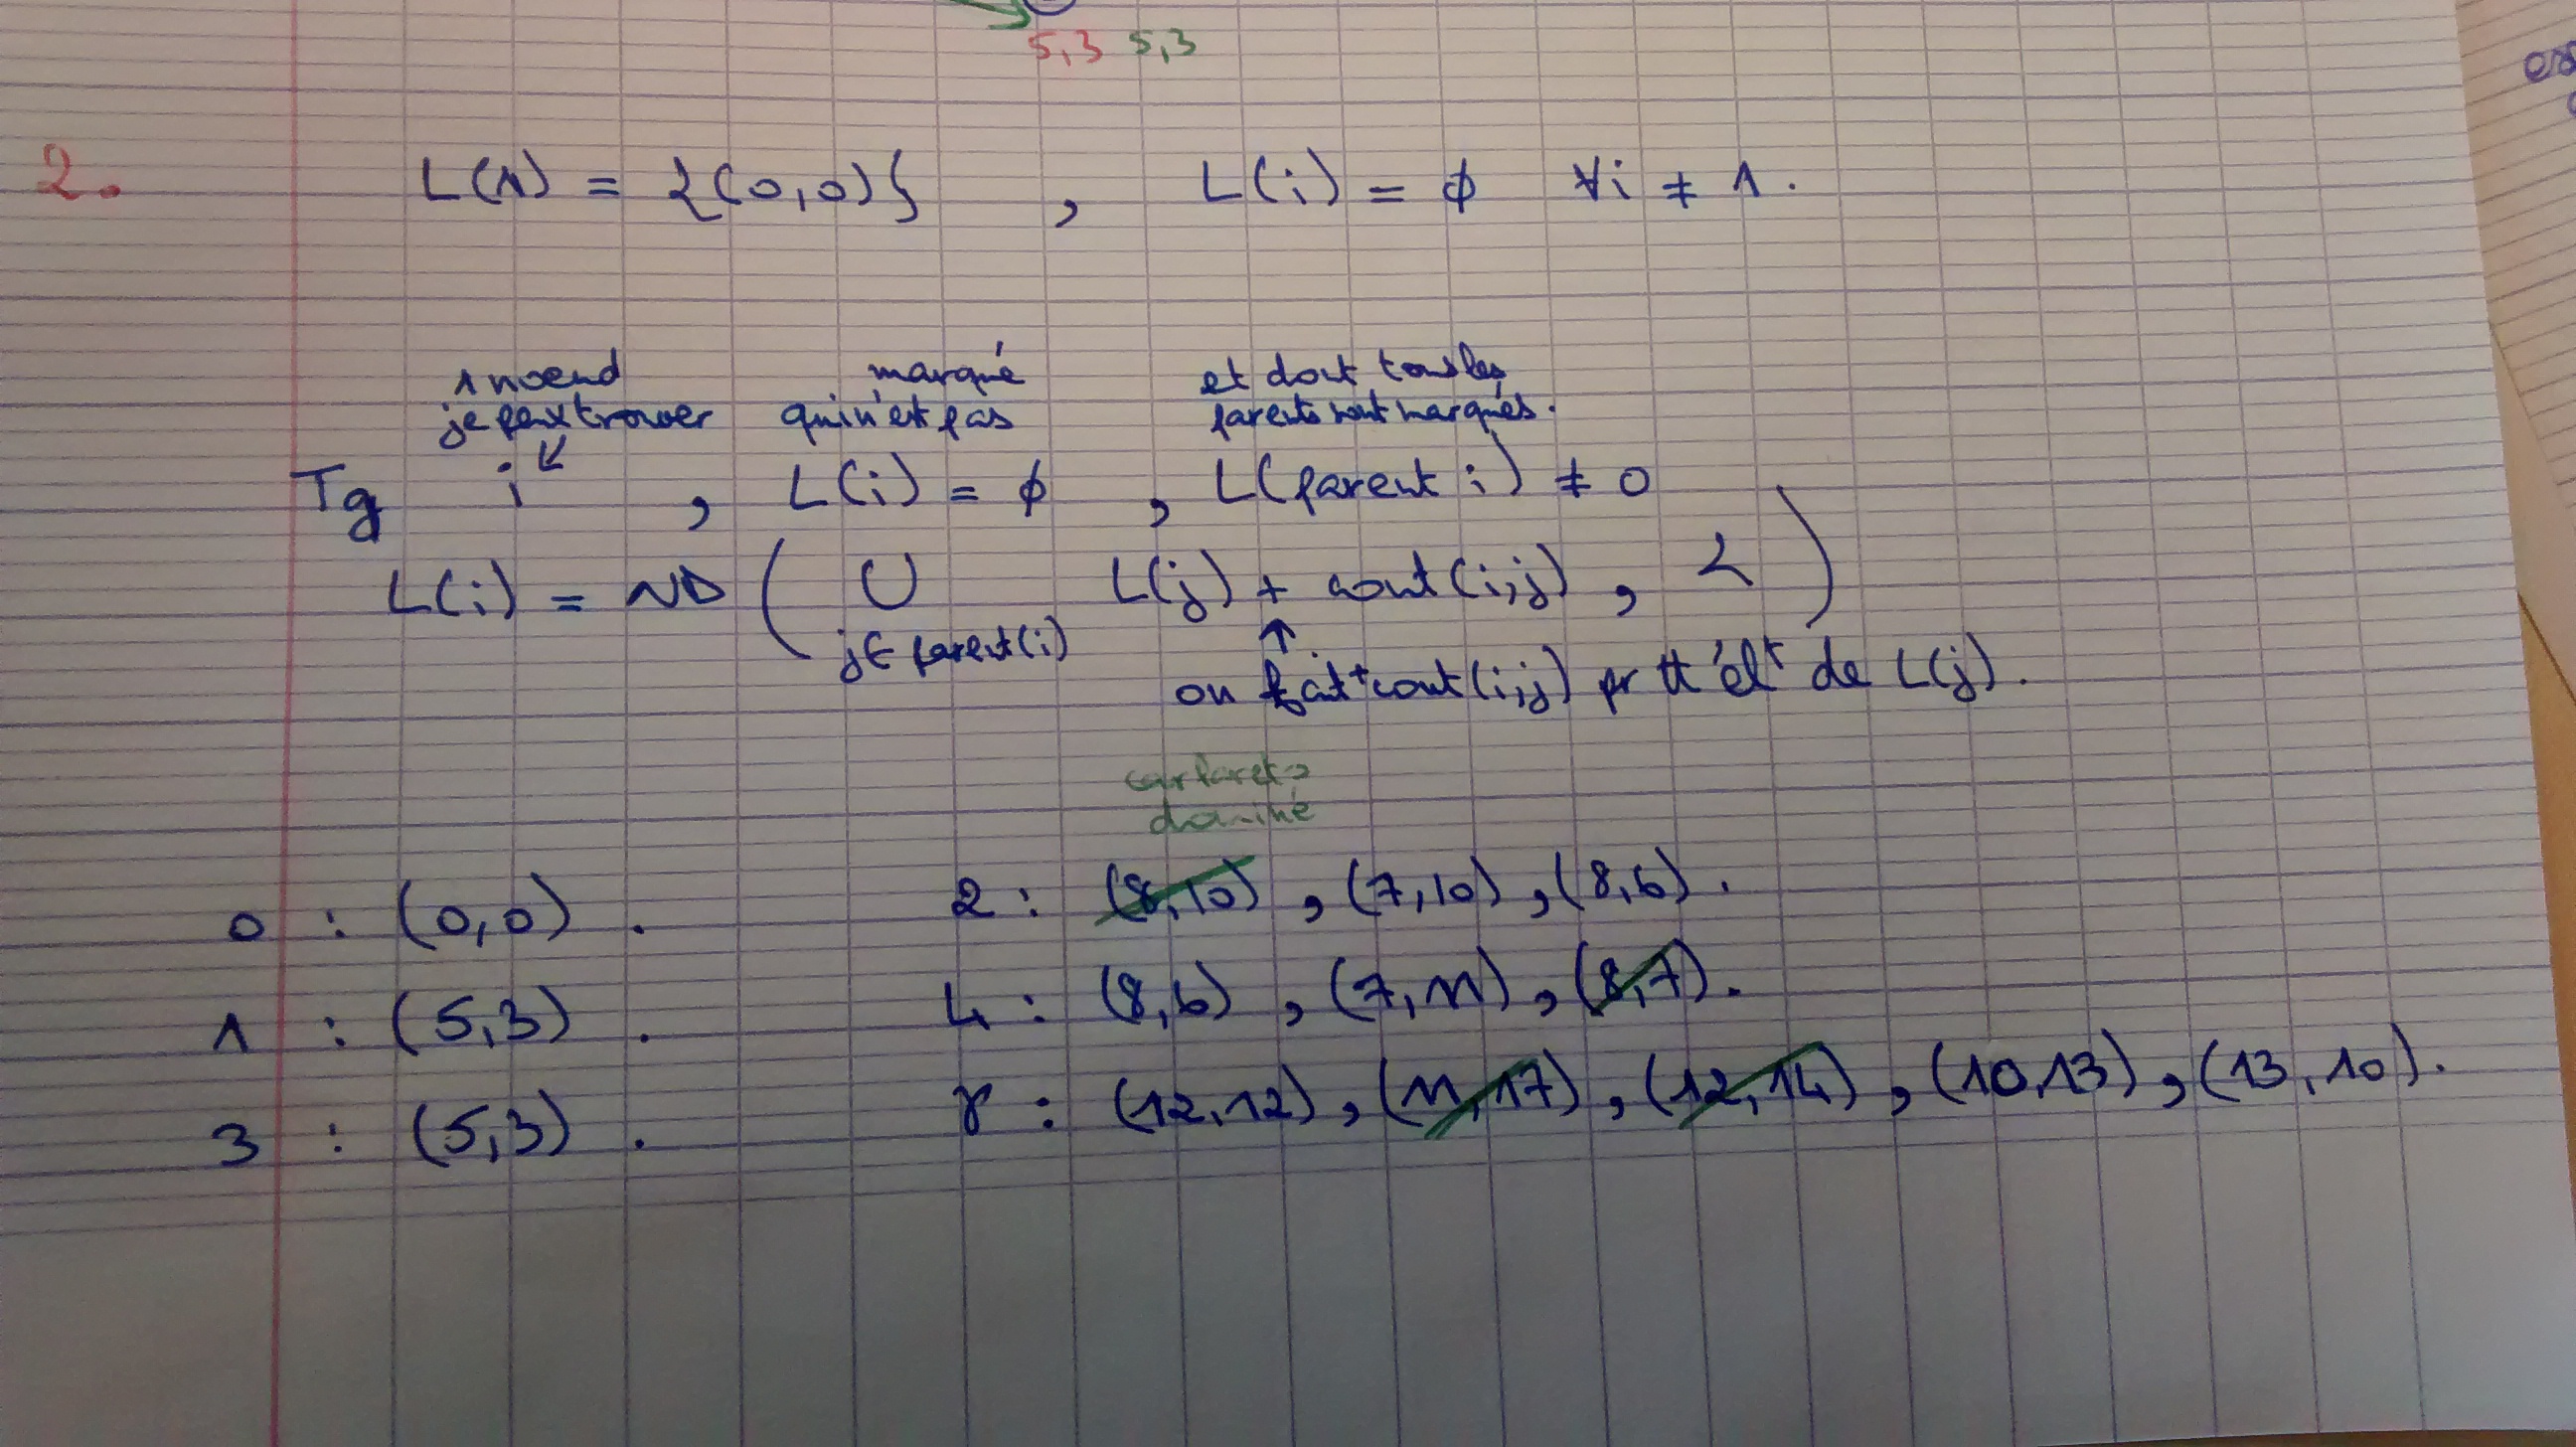 5,3 5,3
2. L(1) = {(0,0)} , L(i) = ∅ ∀i ≠ 1.
1 noeud
je peux trouver
marqué
qui n'est pas
et dont tous les
parents sont marqués.
Tq i , L(i) = ∅ , L(parent i) ≠ 0
L(i) = ND ( ∪ L(j) + cout(i,j) , ≺ )
j ∈ parent(i)
↑
on fait + cout(i,j) pr tt élt de L(j).
car Pareto
dominé
0 : (0,0) .
2 : (8,10) , (7,10) , (8,6) .
1 : (5,3) .
4 : (8,6) , (7,11) , (8,7) .
3 : (5,3) .
γ : (12,12) , (11,17) , (12,14) , (10,13) , (13,10) .